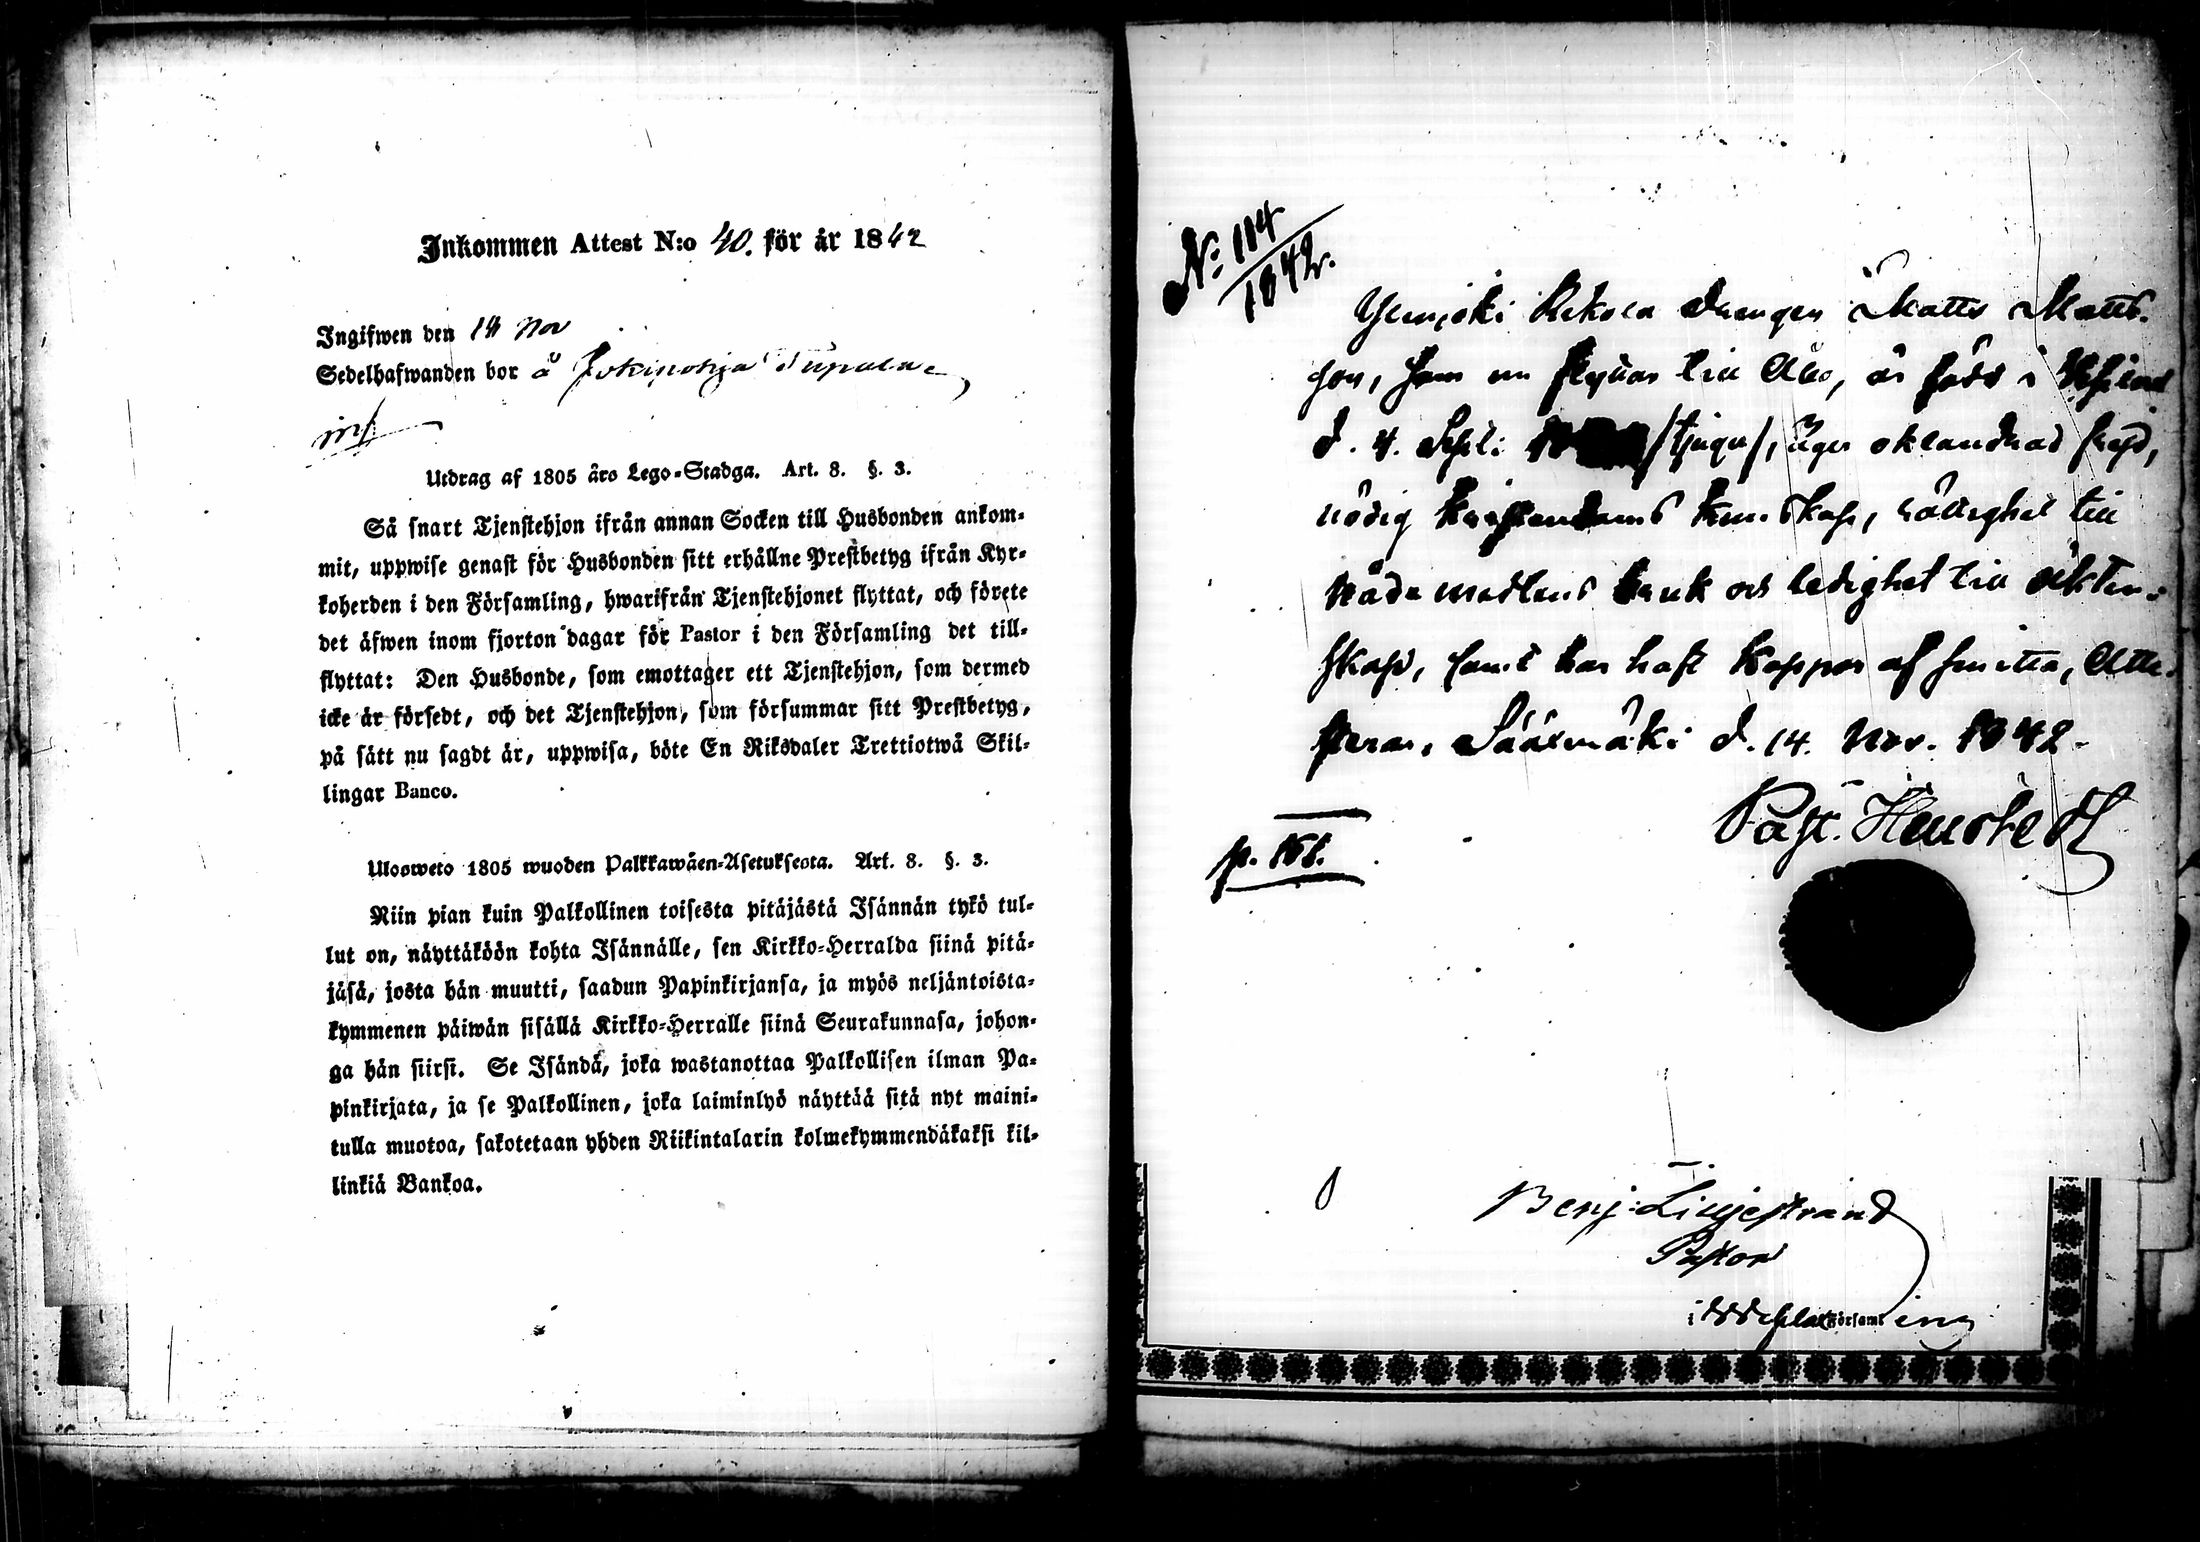 Inkommen Attest N:o 40. för år 1842
Ingifwen den 18 Nov
Sedelhafwanden bor å
Utdrag af 1805 års Lego-Stadga. Art. 8. §. 3.
Så snart Tjenstehjon ifrån annan Socken till Husbonden ankom-
mit, uppwise genast för Husbonden sitt erhållne Prestbetyg ifrån Kyr-
koherden i den Församling, hwarifrån Tjenstehjonet flyttat, och förete
det äfwen inom fjorton dagar för Pastor i den Församling det till-
flyttat: Den Husbonde, som emottager ett Tjenstehjon, som dermed
icke är försedt, och det Tjenstehjon, som försummar sitt Prestbetyg,
på sätt nu sagdt är, uppwisa, böte En Riksdaler Trettiotwå Skil-
lingar Banco.
Ulosweto 1805 wuoden Palkkawäen-Asetuksesta. Art. 8. §. 3.
Niin pian kuin Palkollinen toisesta pitäjästä Isännän tykö tul-
lut on, näyttäköön kohta Isännälle, sen Kirkko-Herralda siinä pitä-
jäsä, josta hän muutti, saadun Papinkirjansa, ja myös neljäntoista-
kymmenen päiwän sisällä Kirkko-Herralle siinä Seurakunnasa, johon-
ga hän siirsi. Se Isändä, joka wastanottaa Palkollisen ilman Pa-
pinkirjata, ja se Palkollinen, joka laiminlyö näyttää sitä nyt maini-
tulla muotoa, sakotetaan yhden Riikintalarin kolmekymmendäkaksi kil-
linkiä Bankoa.
No 114
1842.
drengen Matts Matts-
son, som nu flyttar till Akas, är född i
d. 4. Sept: /tjugu/, äger oklandrad frejd,
nödig kristendoms kunskap, rättighet till
nådemedlens bruk och ledighet till äkten-
skap, samt har haft koppor af smitta, Atte-
steras, Sääxmäki d. 14. Nov. 1842.
Past. Hellstedt
p. 151.
Benj: Liljestrand
Pastor
i Församling